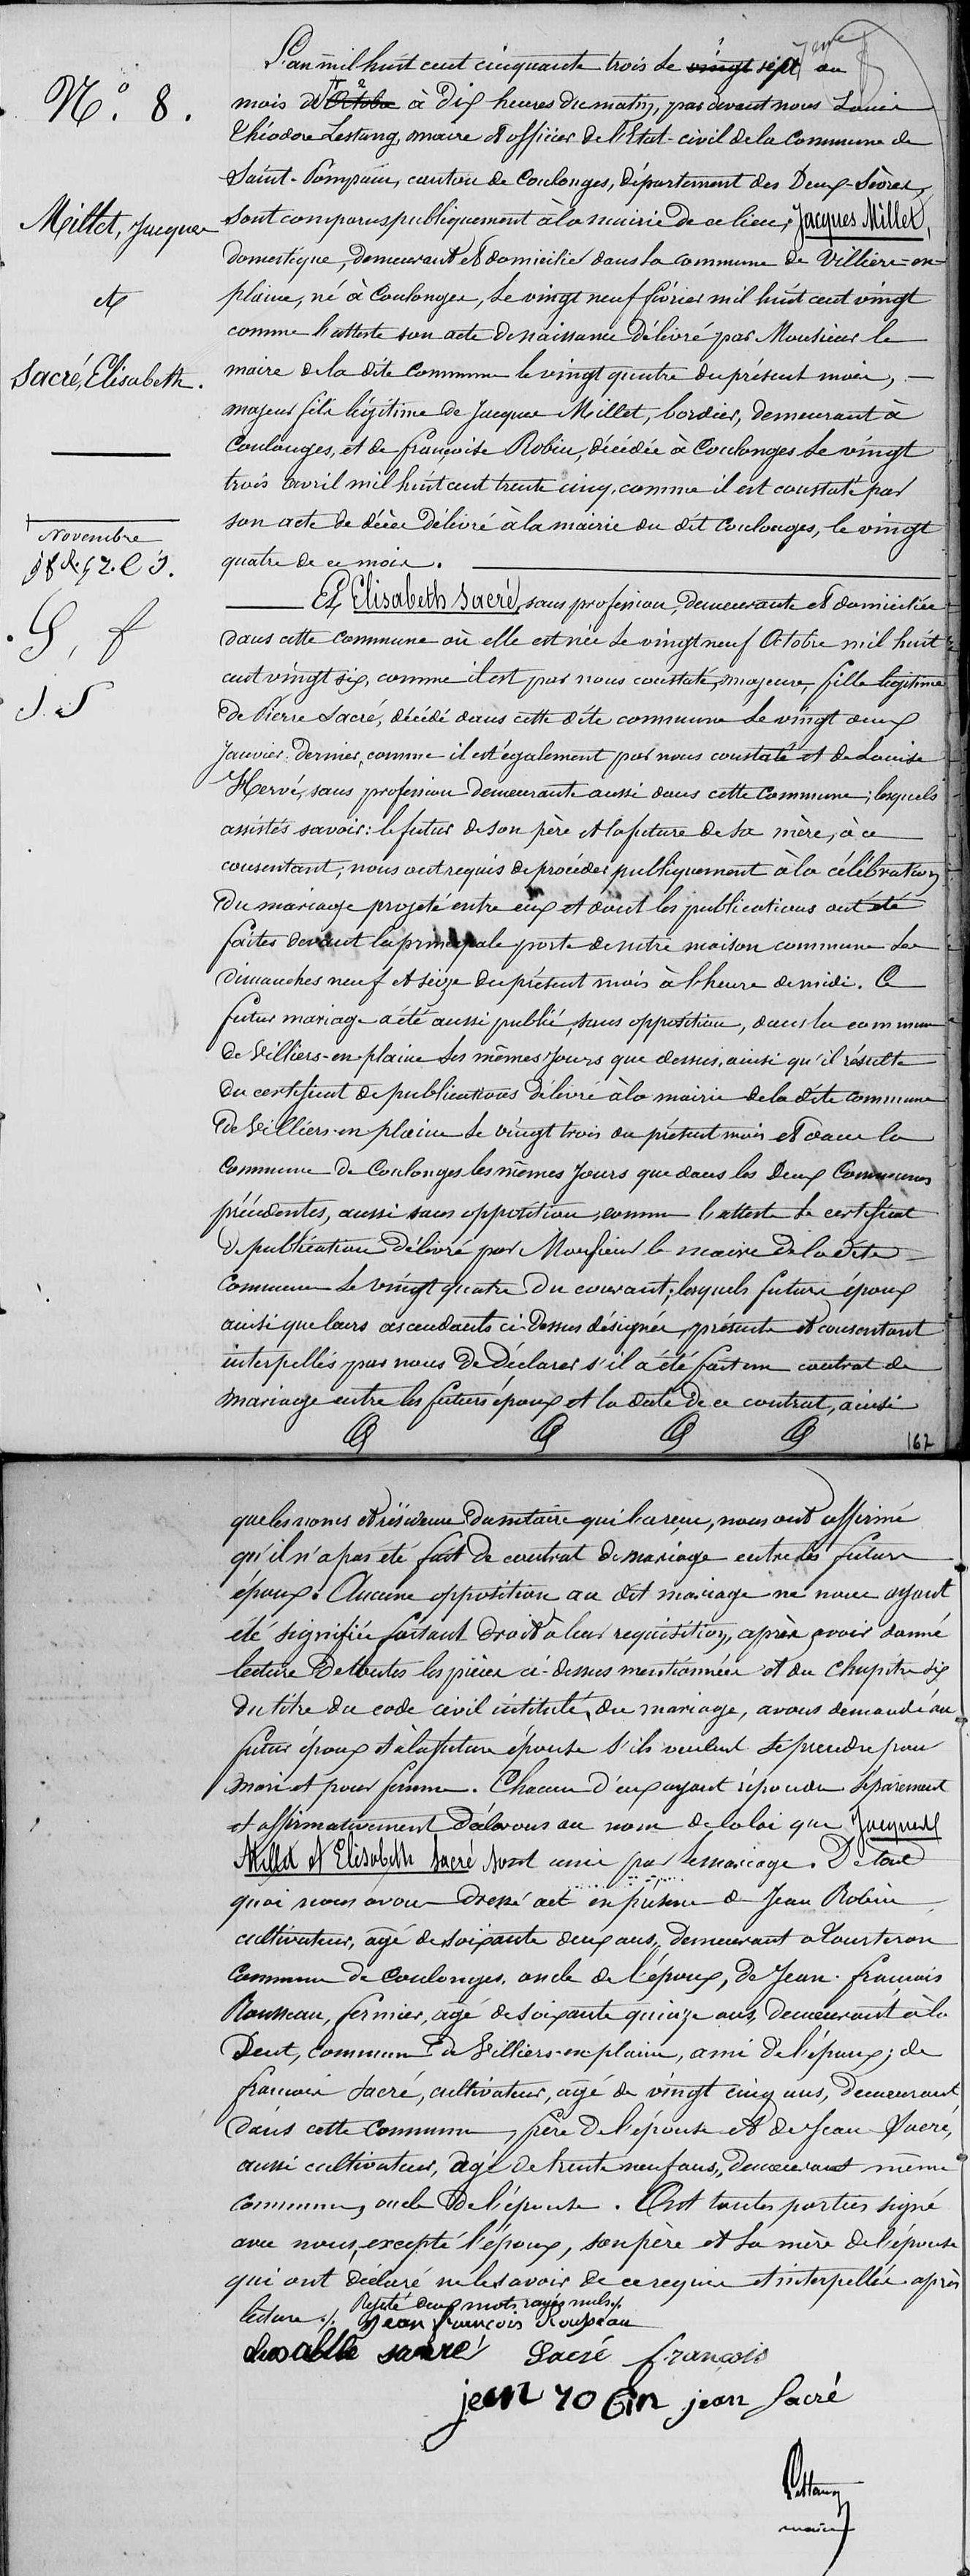 N.° 8.
Millet, Jacques
et
Sacré, Elisabeth.
Novembre
L'an mil huit cent cinquante trois le vingt sept du
mois d'Octobre à dix heures du matin, par devant nous Louis
Théodore Lestang, maire et officier de l'Etat-civil de la Commune de
Saint-Pompain, canton de Coulonges, département des Deux-Sèvres,
sont comparus publiquement à la mairie de ce lieu, Jacques Millet,
domestique, demeurant et domicilié dans la commune de Villiers-en-
plaine, né à Coulonges, le vingt neuf février mil huit cent vingt
comme l'atteste son acte de naissance délivré par Monsieur le
maire de la dite Commune le vingt quatre du présent mois, —
majeur fils légitime de Jacques Millet, bordier, demeurant à
Coulonges, et de françoise Robin, décédée à Coulonges le vingt
trois avril mil huit cent trente cinq, comme il est constaté par
son acte de décès délivré à la mairie du dit Coulonges, le vingt
quatre de ce mois.
Et Elisabeth Sacré, sans profession, demeurante et domiciliée
dans cette commune où elle est née le vingt neuf Octobre mil huit
cent vingt six, comme il est par nous constaté, majeure, fille légitime
de Pierre Sacré, décédé dans cette dite commune le vingt deux
Janvier dernier, comme il est également par nous constaté et de Louise
Hervé, sans profession demeurante aussi dans cette Commune; lesquels
assistés savoir: le futur de son père et la future de sa mère, à ce
consentant, nous ont requis de procéder publiquement à la célébration
du mariage projeté entre eux et dont les publications ont été
faites devant la principale porte de notre maison commune les
dimanches neuf et seize du présent mois à l'heure de midi. Ce
futur mariage a été aussi publié, sans opposition, dans la commune
de Villiers-en-plaine les mêmes Jours que dessus, ainsi qu'il résulte
du certificat de publications délivré à la mairie de la dite commune
de Villiers-en plaine le vingt trois du présent mois et dans la
Commune de Coulonges les mêmes Jours que dans les Deux Communes
précédentes, aussi sans opposition, comme l'atteste le certificat
de publication délivré par Monsieur le maire de la dite
Commune le vingt quatre du courant; lesquels futurs époux
ainsi que leurs ascendants ci-dessus désignés, présents et consentant
interpellés par nous de déclarer s'il a été fait un contrat de
mariage entre les futurs époux et la date de ce contrat, ainsi
162
que les noms et résidence du notaire qui l'a reçu, nous ont affirmé
qu'il n'a pas été fait de contrat de mariage entre les futurs
époux. Aucune opposition au dit mariage ne nous ayant
été signifiée faisant droit à leur réquisition, après avoir donné
lecture de toutes les pièces ci-dessus mentionnées et du Chapitre six
du titre du code civil intitulé, du mariage, avons demandé au
futur époux et à la future épouse s'ils veulent se prendre pour
mari et pour femme. Chacun d'eux ayant répondu séparément
et affirmativement déclarons au nom de la loi que Jacques
Millet et Elisabeth Sacré sont unis par le mariage. De tout
quoi nous avons dressé acte en présence de Jean Robin
cultivateur, âgé de soixante deux ans, demeurant à
Commune de Coulonges, oncle de l'époux, de Jean-françois
Rousseau, fermier, âgé de soixante quinze ans, demeurant à la
Dent, commune de Villiers-en-plaine, ami de l'époux; de
françois Sacré, cultivateur, âgé de vingt cinq ans, demeurant
dans cette Commune, frère de l'épouse et de Jean Sacré,
aussi cultivateur, âgé de trente neuf ans, demeurant même
commune, oncle de l'épouse. Ont toutes parties signé
avec nous, excepté l'époux, son père et la mère de l'épouse
qui ont déclaré ne le savoir de ce requis et interpellés après
lecture ./. Rejeté deux mots rayés nuls./.
Jean françois Rousseau
sacré Sacré françois
jean robin jean Sacré
Lestang
maire